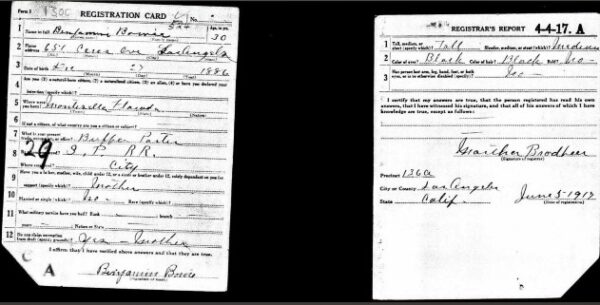 Form 1
REGISTRATION CARD
No.
1 Name in full Benjamin Bowie 30
Age, in yrs.
2 Home address 651 Ceres Ave Los Angeles
3 Date of birth Dec 27 1886
4 Are you (1) a natural-born citizen, (2) a naturalized citizen, (3) an alien, (4) or have you declared your
intention (specify which)?
5 Where were you born? Monticello Florida
6 If not a citizen, of what country are you a citizen or subject?
7 What is your present trade, occupation, or office? Buffet Porter
8 S. P. RR.
29
Where employed? City
9 Have you a father, mother, wife, child under 12, or a sister or brother under 12, solely dependent on you for
support (specify which)? Mother
10 Married or single (which)? Race (specify which)?
11 What military service have you had? Rank branch
years Nation or State
12 Do you claim exemption from draft (specify grounds)? Yes - Mother
I affirm that I have verified above answers and that they are true.
Benjamin Bowie
A
REGISTRAR'S REPORT 4-4-17. A
1 Tall, medium, or short (specify which)? Tall Slender, medium, or stout (which)? Medium
2 Color of eyes? Black Color of hair? Black Bald? No
3 Has person lost arm, leg, hand, foot, or both
eyes, or is he otherwise disabled (specify)? No
I certify that my answers are true, that the person registered has read his own
answers, that I have witnessed his signature, and that all of his answers of which I have
knowledge are true, except as follows:
(Signature of registrar)
Precinct 136a
City or County Los Angeles
State Calif. June 5-1917
(Date of registration)